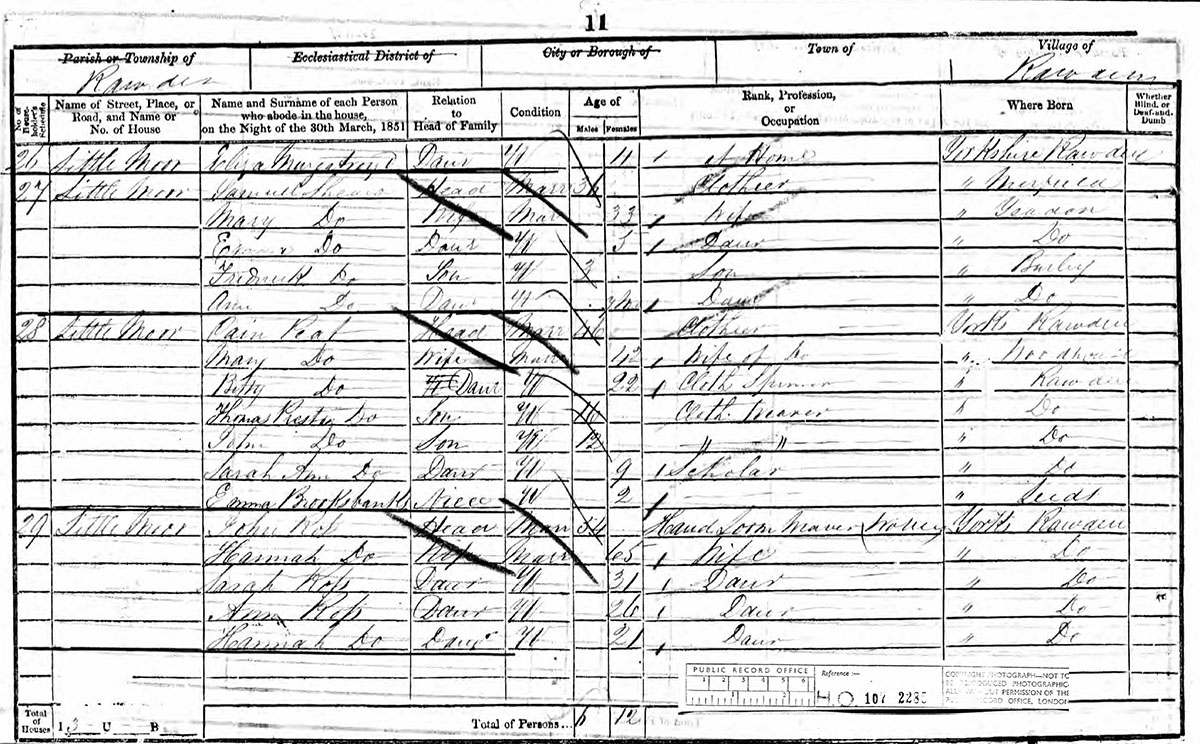 11
Parish or Township of Ecclesiastical District of City or Borough of Town of Village of
Rawden Rawden
No. of House-holder's Schedule Name of Street, Place, or Road, and Name or No. of House Name and Surname of each Person who abode in the house, on the Night of the 30th March, 1851 Relation to Head of Family Condition Age of Males Females Rank, Profession, or Occupation Where Born Whether Blind, or Deaf-and-Dumb
26 Little Moor Eliza Daur U 4 at Home Yorkshire Rawden
27 Little Moor Samuel Head Marr 36 Clothier "
Mary Do Wife Mar 33 Wife " Yeadon
Do Daur U 5 Daur " Do
Fredrick Do Son U 3 Son " Burley
Ann Do Daur U Daur " Do
28 Little Moor Cain Peat Head Marr 46 Clothier Yorks Rawden
Mary Do Wife Marr 42 Wife of Do " Woodhouse
Betty Do Daur U 22 Cloth Spinner " Rawden
Thomas Do Son U 16 Cloth Weaver " Do
John Do Son U 12 " " " Do
Sarah Ann Do Daur U 9 Scholar " Do
Emma Brooksbank Niece U 2 " Leeds
29 Little Moor John Head Marr 54 Hand Loom Weaver Yorks Rawden
Hannah Do Wife Marr 65 Wife " Do
Sarah Daur U 31 Daur " Do
Ann Daur U 26 Daur " Do
Hannah Do Daur U 21 Daur " Do
PUBLIC RECORD OFFICE Reference :-
1 2 3 4 5 6 HO 107 2285
COPYRIGHT PHOTOGRAPH—NOT TO BE REPRODUCED PHOTOGRAPHICALLY WITHOUT PERMISSION OF THE PUBLIC RECORD OFFICE, LONDON
Total of Houses I 3 U B Total of Persons... 6 12